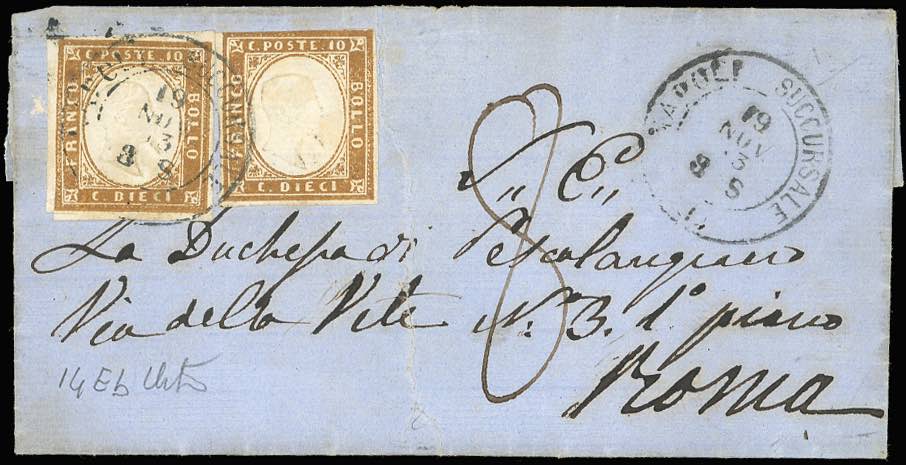 C. POSTE. 10
FRANCO
BOLLO
C. DIECI
C. POSTE. 10
FRANCO
BOLLO
C. DIECI
19
NOV
3 S
NAPOLI SUCCURSALE
19
NOV
3 S
8
S,, E,,
La Duchessa di
Via della Vite N.° 3. 1° piano
Roma
14Eb